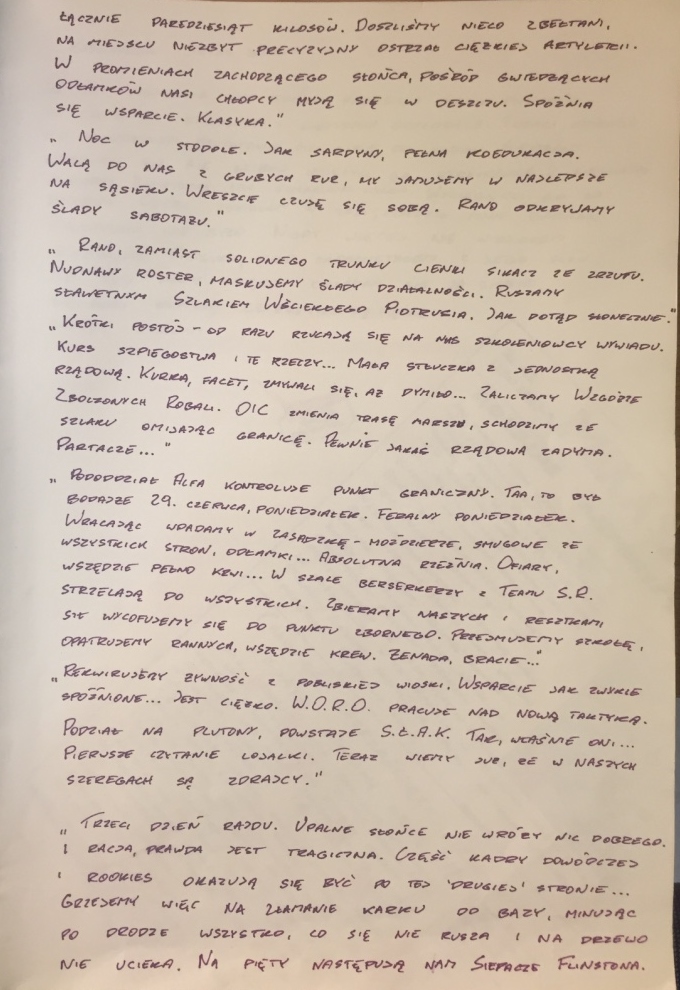 ŁĄCZNIE PAREDZIESIĄT KILOSÓW. DOSZLIŚMY NIECO ZBEŁTANI,
NA MIEJSCU NIEZBYT PRECYZYJNY OSTRZAŁ CIĘŻKIEJ ARTYLERII.
W PROMIENIACH ZACHODZĄCEGO SŁOŃCA, POŚRÓD GWIŻDŻĄCYCH
ODŁAMKÓW NASI CHŁOPCY MYJĄ SIĘ W DESZCZU. SPÓŹNIA
SIĘ WSPARCIE. KLASYKA."
„ NOC W STODOLE. JAK SARDYNY, PEŁNA KOEDUKACJA.
WALĄ DO NAS Z GRUBYCH RUR, MY JARUJEMY W NAJLEPSZE
NA SĄSIEKU. WRESZCIE CZUJĘ SIĘ SOBĄ. RANO ODKRYJAMY
ŚLADY SABOTAŻU."
„ RANO, ZAMIAST SOLIDNEGO TRUNKU CIENKI SIKACZ ZE ZRZUTU.
NUDNAWY ROSTER, MASKUJEMY ŚLADY DZIAŁALNOŚCI. RUSZAMY
SŁAWETNYM SZLAKIEM WŚCIEKŁEGO PIOTRUSIA. JAK DOTĄD SŁONECZNIE."
„KRÓTKI POSTÓJ - OD RAZU RZUCAJĄ SIĘ NA NAS SZKOLENIOWCY WYWIADU.
KURS SZPIEGOSTWA I TE RZECZY... MAŁA STŁUCZKA Z JEDNOSTKĄ
RZĄDOWĄ. KURKA, FACET, ZMYWALI SIĘ, AŻ DYMIŁO... ZALICZAMY WZGÓRZE
ZBOLZONYCH ROBALI. OIC ZMIENIA TRASĘ MARSZU, SCHODZIMY ZE
SZLAKU OMIJAJĄC GRANICĘ. PEWNIE JAKAŚ RZĄDOWA ZADYMA.
PARTACZE..."
„ PODODDZIAŁ ALFA KONTROLUJE PUNKT GRANICZNY. TAA, TO BYŁ
BODAJŻE 29. CZERWCA, PONIEDZIAŁEK. FERALNY PONIEDZIAŁEK.
WRACAJĄC WPADAMY W ZASADZKĘ - MOŹDZIERZE, SMUGOWE ZE
WSZYSTKICH STRON, ODŁAMKI... ABSOLUTNA RZEŹNIA. OFIARY,
WSZĘDZIE PEŁNO KRWI... W SZALE BERSERKERZY Z TEAMU S.R.
STRZELAJĄ DO WSZYSTKICH. ZBIERAMY NASZYCH I RESZTKAMI
SIŁ WYCOFUJEMY SIĘ DO PUNKTU ZBORNEGO. PRZEJMUJEMY SZKOŁĘ,
OPATRUJEMY RANNYCH, WSZĘDZIE KREW. ŻENADA, BRACIE..."
„REKWIRUJEMY ŻYWNOŚĆ Z POBLISKIEJ WIOSKI. WSPARCIE JAK ZWYKLE
SPÓŹNIONE... JEST CIĘŻKO. W.O.R.O. PRACUJE NAD NOWĄ TAKTYKĄ.
PODZIAŁ NA PLUTONY, POWSTAJE S.Ł.A.K. TAK, WŁAŚNIE ONI...
PIERWSZE CZYTANIE LOJALKI. TERAZ WIEMY JUŻ, ŻE W NASZYCH
SZEREGACH SĄ ZDRAJCY."
„ TRZECI DZIEŃ RAJDU. UPALNE SŁOŃCE NIE WRÓŻY NIC DOBREGO.
I RACJA, PRAWDA JEST TRAGICZNA. CZĘŚĆ KADRY DOWÓDCZEJ
I ROOKIES OKAZUJĄ SIĘ BYĆ PO TEJ 'DRUGIEJ' STRONIE...
GRZEJEMY WIĘC NA ZŁAMANIE KARKU DO BAZY, MINUJĄC
PO DRODZE WSZYSTKO, CO SIĘ NIE RUSZA I NA DRZEWO
NIE UCIEKA. NA PIĘTY NASTĘPUJĄ NAM SIEPACZE FLINSTONA.